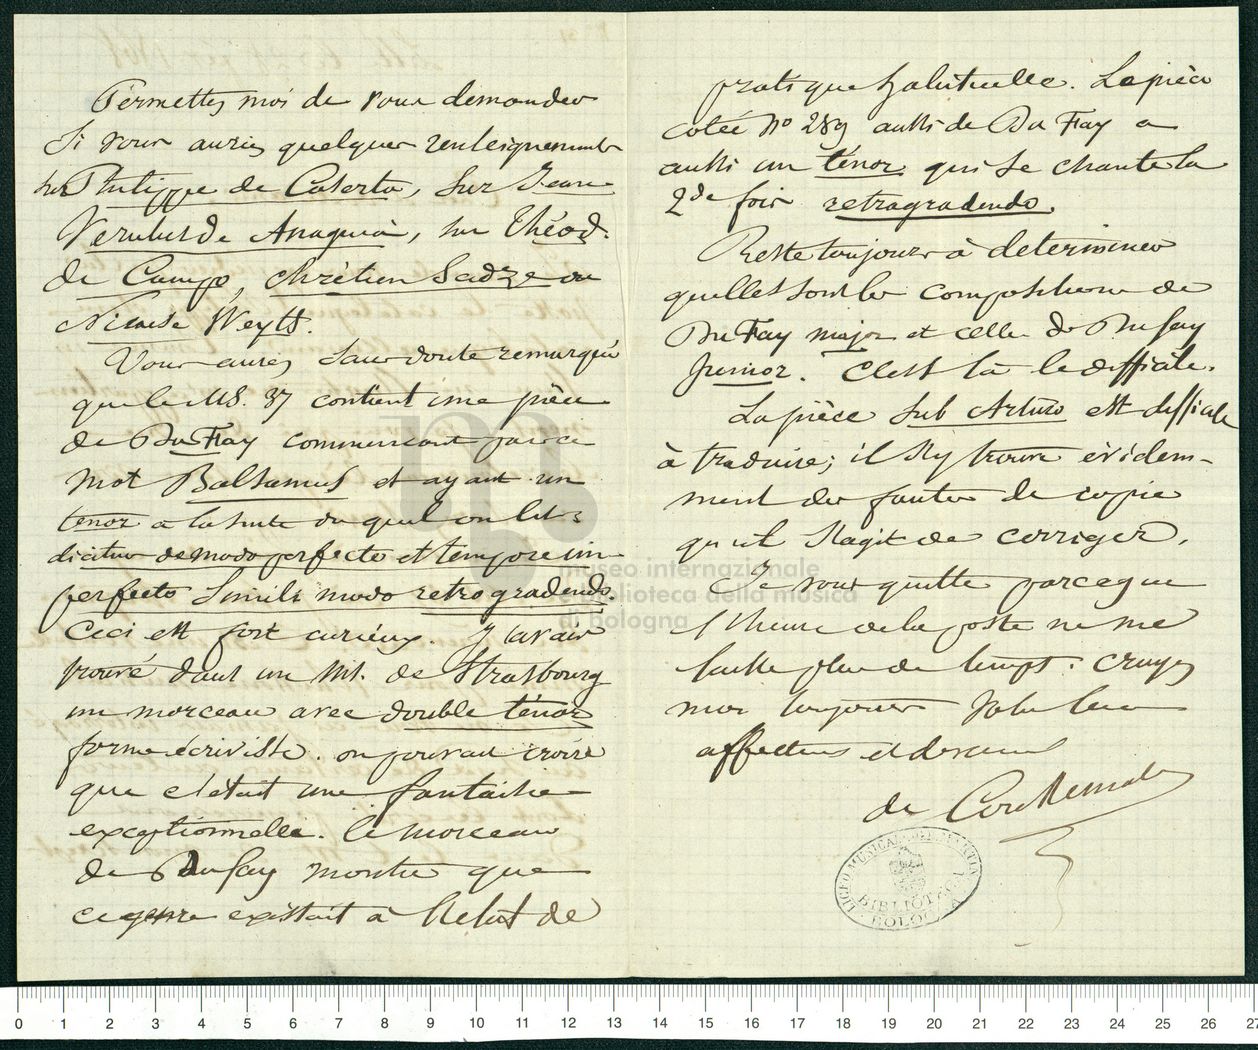 Permettez moi de vous demander
si vous auriez quelques renseignements
sur Philippe de Caserta, sur Jean
Verulus de Anagnia, sur Théod.
de Campo, Chrétien Sadze ou
Nicaise Weyts.
Vous aurez sans doute remarqué
que le MS. 37 contient une pièce
de Du Fay commençant par ce
mot Balsamus et ayant un
tenor a la suite du quel on lit :
dicitur de modo perfecto et tempore im-
perfecto simili modo retrogradendo.
Ceci est fort curieux. J'avais
trouvé dans un MS. de Strasbourg
un morceau avec double ténor
forme écriviste. on pouvait croire
que c'était une fantaisie
exceptionnelle. le morceau
de Dufay montre que
ce genre existait à l'état de
pratique habituelle. La pièce
cotée No 289 aussi de Du Fay a
aussi un ténor qui se chante la
2de fois retrogradendo.
Reste toujours à determiner
quelles sont les compositions de
Du Fay major et celles de Dufay
junior. C'est là le difficile.
La pièce sub Arturo est difficile
à traduire ; il s'y trouve évidem-
ment des fautes de copie
qu'il s'agit de corriger.
Je vous quitte parceque
l'heure de la poste ne me
laisse plus de temps. croyez
moi toujours votre bien
affectueux et dévoué
de Coussemaker
LICEO MUSICALE
BIBLIOTECA
BOLOGNA
museo internazionale
e biblioteca della musica
di bologna
0 1 2 3 4 5 6 7 8 9 10 11 12 13 14 15 16 17 18 19 20 21 22 23 24 25 26 27